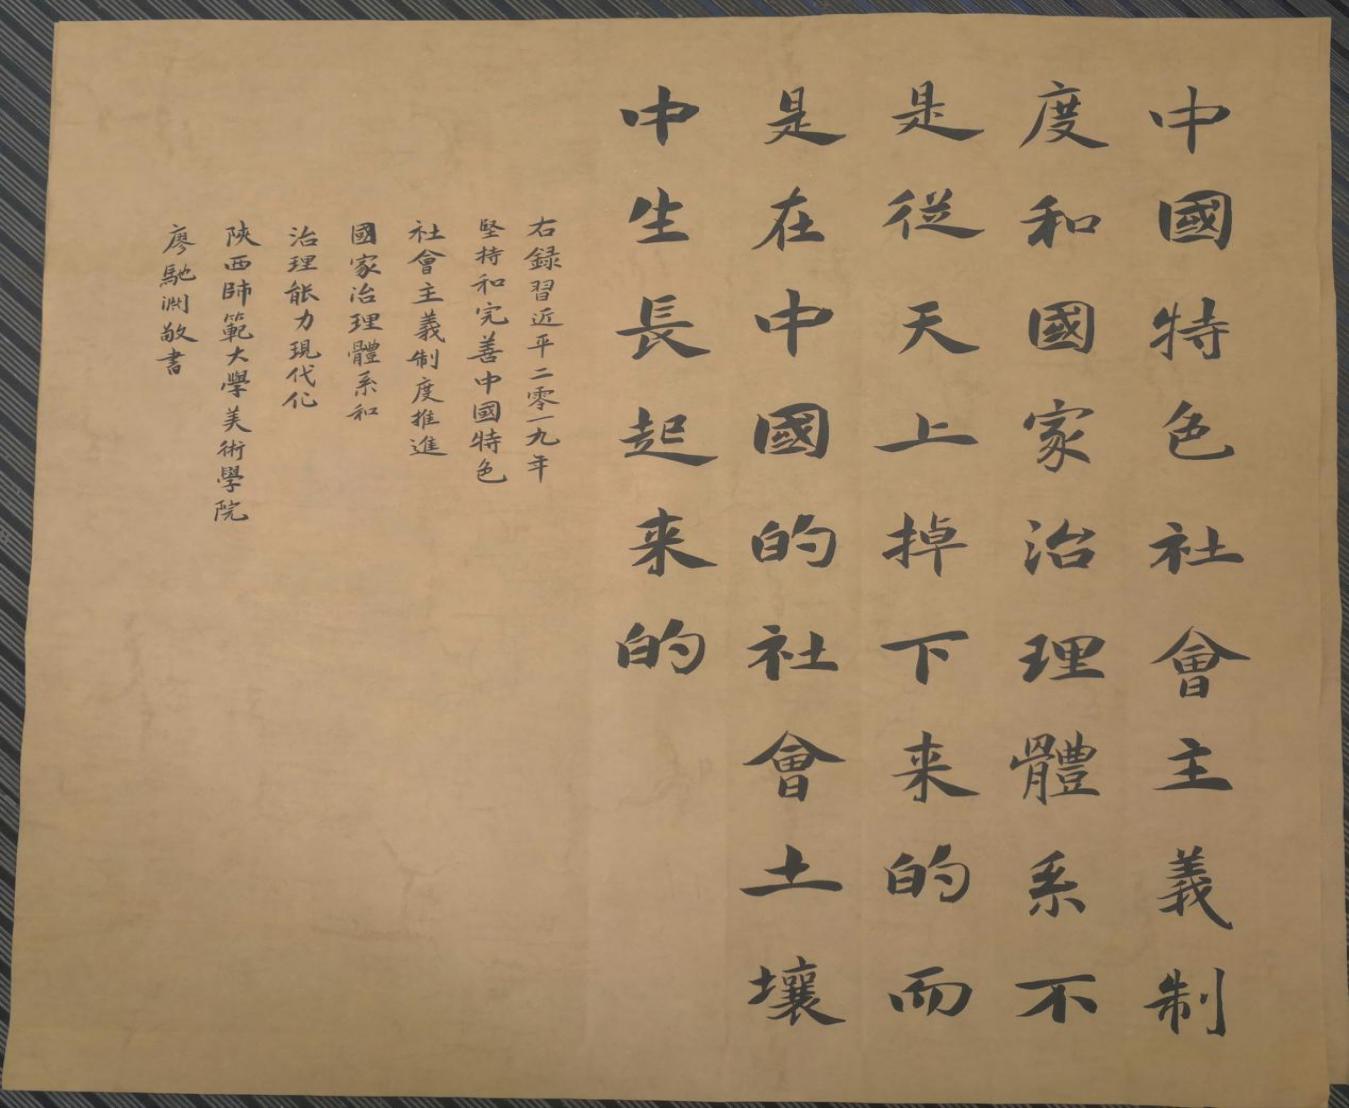 中國特色社會主義制
度和國家治理體系不
是從天上掉下来的而
是在中國的社會土壤
中生長起来的
右録習近平二零一九年
堅持和完善中國特色
社會主義制度推進
國家治理體系和
治理能力現代化
陝西師範大學美術學院
廖馳渊敬書